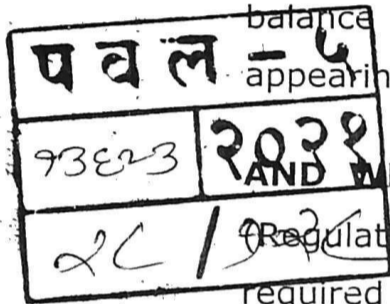 balance
पवल - ५
appearin
२०२१
AND W
२८ /
(Regulat
required